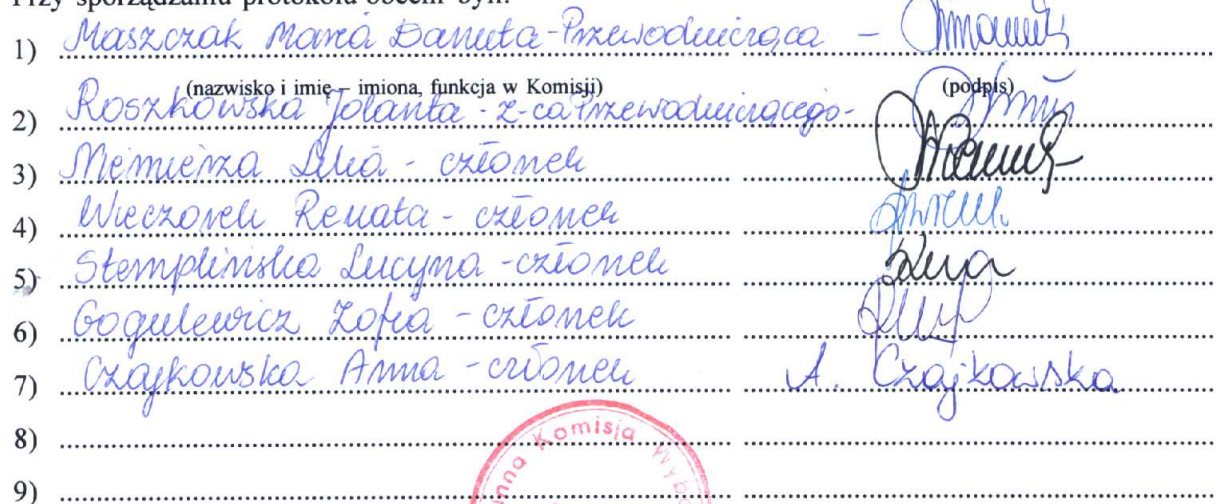 Przy sporządzaniu protokołu obecni byli:
1) Maszczak Maria Danuta - Przewodnicząca -
(nazwisko i imię – imiona, funkcja w Komisji) (podpis)
2) Roszkowska Jolanta - z-ca Przewodniczącego -
3) Niemierza Lilia - członek
4) Wieczorek Renata - członek
5) Stemplińska Lucyna - członek
6) Gogulewicz Zofia - członek
7) Czajkowska Anna - członek A. Czajkowska
8)
9)
Komisja